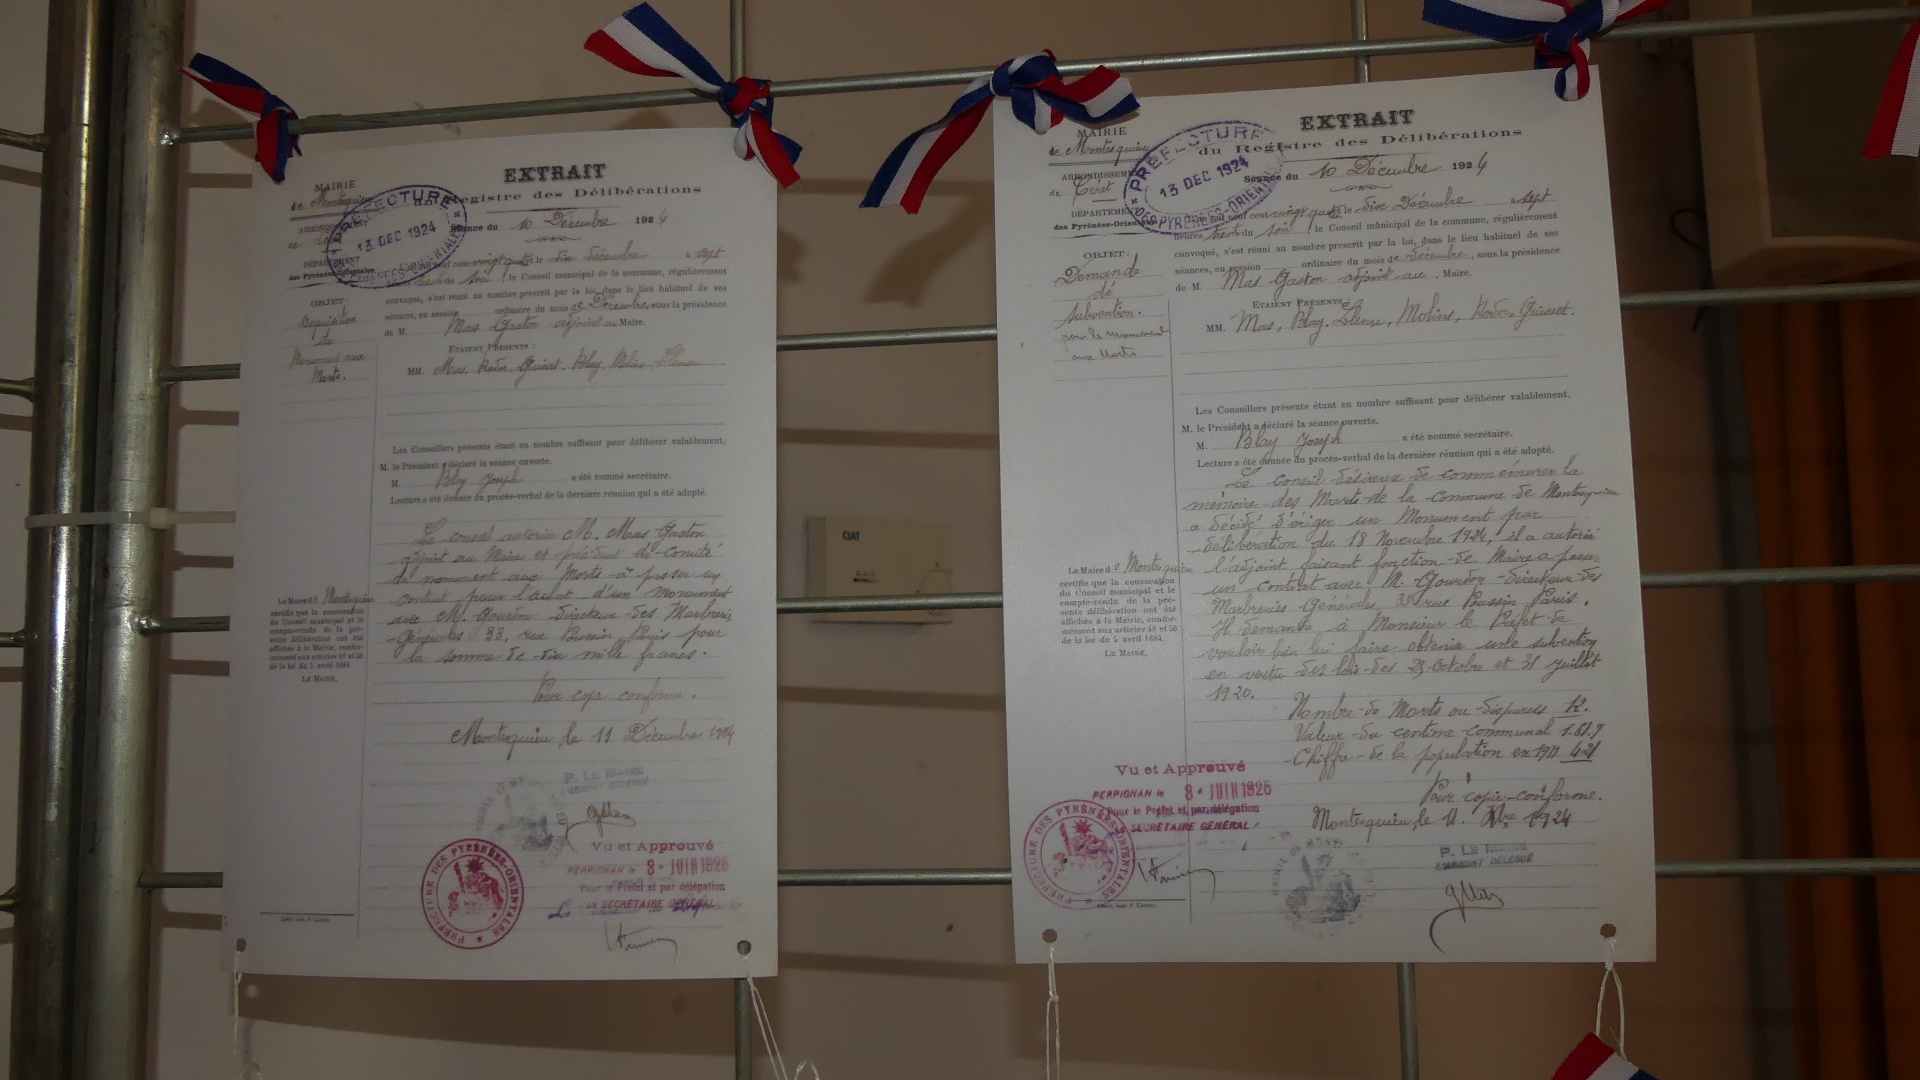 EXTRAIT
du Registre des Délibérations
MAIRIE
de Montesquieu
PRÉFECTURE
13 DEC 1924
DES PYRÉNÉES-ORIENTALES
ARRONDISSEMENT
DÉPARTEMENT
des Pyrénées-Orientales
Séance du 10 Décembre 1924
neuf cent vingt quatre le dix décembre à sept
heures du soir, le Conseil municipal de la commune, régulièrement
convoqué, s'est réuni au nombre prescrit par la loi, dans le lieu habituel de ses
séances, en session ordinaire du mois de Décembre, sous la présidence
de M. Mas Gaston adjoint au Maire.
OBJET:
Acquisition
du
Monument aux
Morts.
ETAIENT PRÉSENTS :
MM. Mas, Blay, Molins
Les Conseillers présents étant en nombre suffisant pour délibérer valablement,
M. le Président a déclaré la séance ouverte.
M. Blay Joseph a été nommé secrétaire.
Lecture a été donnée du procès-verbal de la dernière réunion qui a été adopté.
Le conseil autorise M. Mas Gaston
adjoint au Maire et président du Comité
du monument aux Morts à passer un
contrat pour l'achat d'un monument
avec M. Gourdon directeur des Marbreries
Générales 33, rue Poussin Paris pour
la somme de dix mille francs.
Pour copie conforme.
Montesquieu, le 11 Décembre 1924
Le Maire de Montesquieu
certifie que la convocation
du Conseil municipal et le
compte-rendu de la pré-
sente délibération ont été
affichés à la Mairie, confor-
mément aux articles 48 et 56
de la loi du 5 avril 1884.
LE MAIRE,
P. LE MAIRE
L'ADJOINT DÉLÉGUÉ
GMas
Vu et Approuvé
PERPIGNAN le 8 - JUIN 1925
Pour le Préfet et par délégation
LE SECRÉTAIRE GÉNÉRAL
PRÉFECTURE DES PYRÉNÉES-ORIENTALES
EXTRAIT
du Registre des Délibérations
MAIRIE
de Montesquieu
PRÉFECTURE
13 DEC 1924
DES PYRÉNÉES-ORIENTALES
ARRONDISSEMENT
de Céret
DÉPARTEMENT
des Pyrénées-Orientales
Séance du 10 Décembre 1924
neuf cent vingt quatre le dix Décembre à sept
heures du soir, le Conseil municipal de la commune, régulièrement
convoqué, s'est réuni au nombre prescrit par la loi, dans le lieu habituel de ses
séances, en session ordinaire du mois de décembre, sous la présidence
de M. Mas Gaston adjoint au Maire.
OBJET:
Demande
de
subvention.
pour le monument
aux Morts
ETAIENT PRÉSENTS :
MM. Mas, Blay, Molins
Les Conseillers présents étant en nombre suffisant pour délibérer valablement,
M. le Président a déclaré la séance ouverte.
M. Blay Joseph a été nommé secrétaire.
Lecture a été donnée du procès-verbal de la dernière réunion qui a été adopté.
Le conseil désireux de commémorer la
mémoire des Morts de la commune de Montesquieu
a décidé d'ériger un Monument par
délibération du 18 Novembre 1924, il a autorisé
l'adjoint faisant fonction de Maire a passer
un contrat avec M. Gourdon directeur des
Marbreries Générales, rue Poussin Paris.
Il demande à Monsieur le Préfet de
vouloir bien lui faire obtenir une subvention
en vertu des lois des 25 Octobre et 31 juillet
1920.
Nombre de Morts ou disparus 12.
Valeur du centime communal
Chiffre de la population en 1911 421
Pour copie conforme.
Montesquieu, le 11. Xbre 1924
Le Maire de Montesquieu
certifie que la convocation
du Conseil municipal et le
compte-rendu de la pré-
sente délibération ont été
affichés à la Mairie, confor-
mément aux articles 48 et 56
de la loi du 5 avril 1884.
LE MAIRE,
Vu et Approuvé
PERPIGNAN le 8 - JUIN 1925
Pour le Préfet et par délégation
SECRÉTAIRE GÉNÉRAL
PRÉFECTURE DES PYRÉNÉES-ORIENTALES
P. LE MAIRE
L'ADJOINT DÉLÉGUÉ
GMas
CIAT